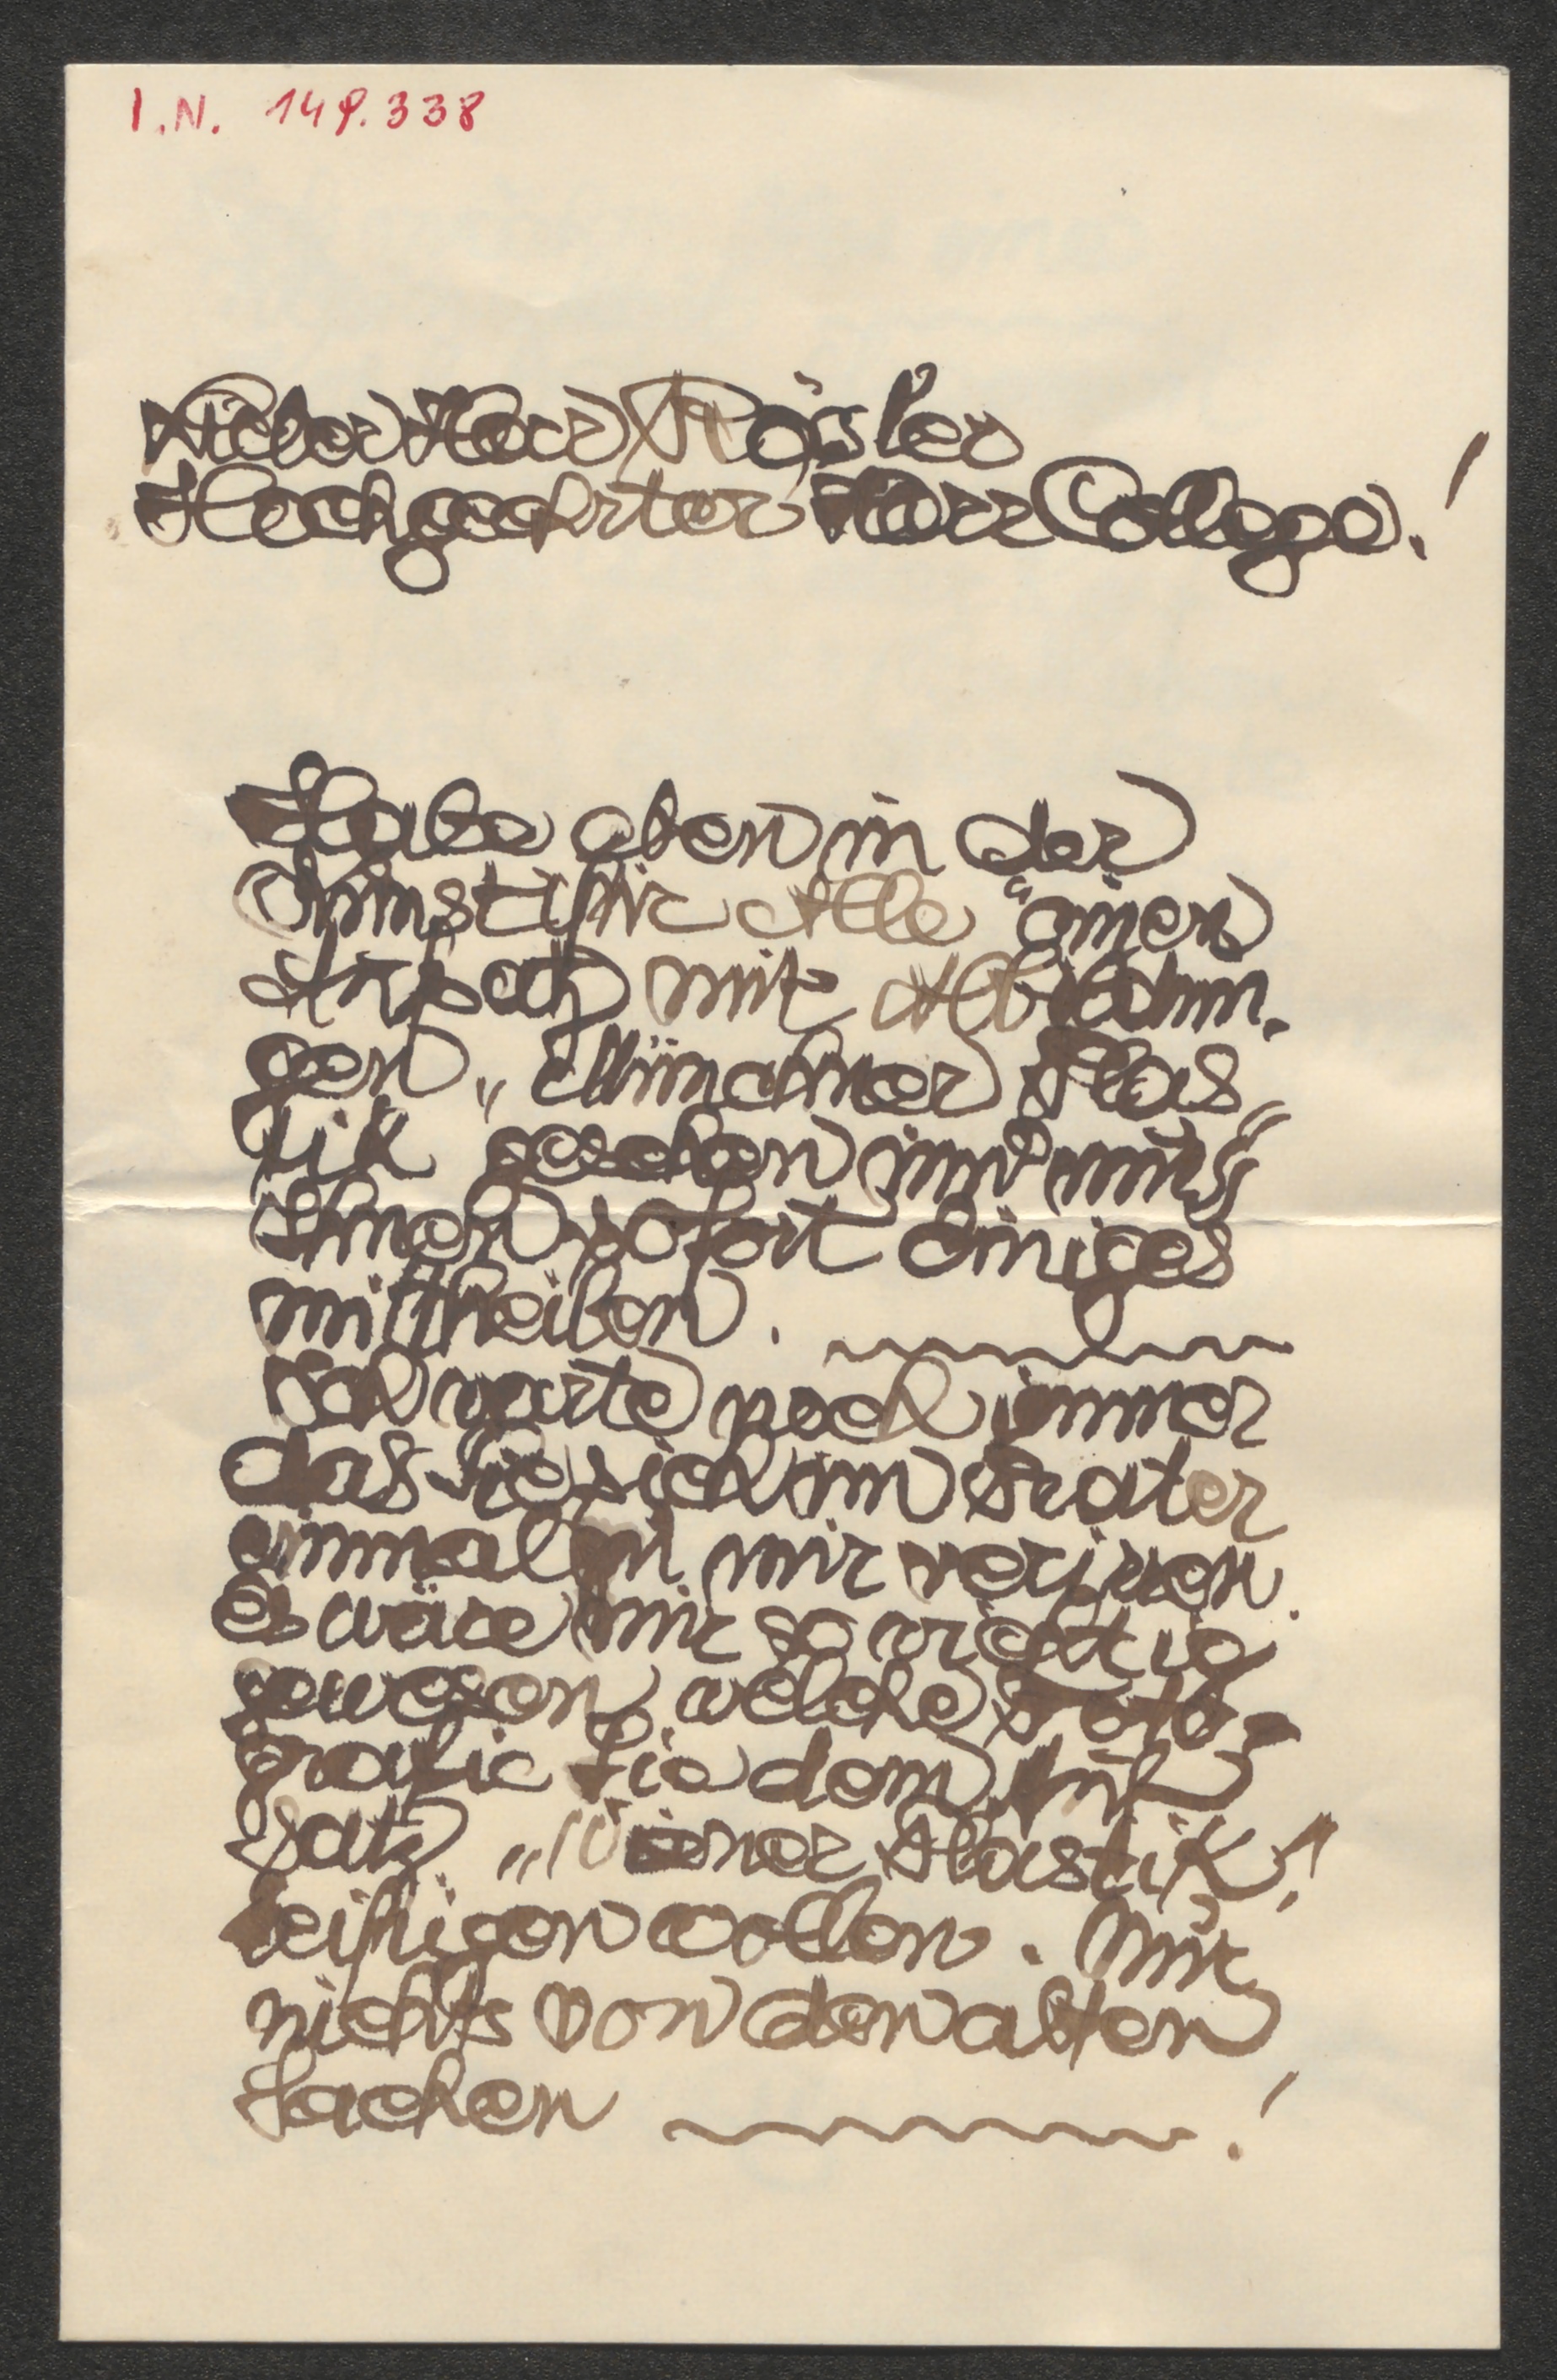 I.N. 149.338
Lieber Herr Rösler
Hochgeehrter Herr College!
Habe eben in der
Kunst für Alle einen
Aufsatz mit Abbildun-
gen „Münchner Plas-
tik gesehen und muß
Ihnen sofort Einiges
mittheilen.
Ich warte noch immer
das Sie sich im Prater
einmal zu mir verirren.
Es wäre mir so wichtig
gewesen, welche Foto-
grafie Sie dem Auf-
satz „Wiener Plastik"!
beifügen wollen. Nur
nichts von den alten
Sachen !